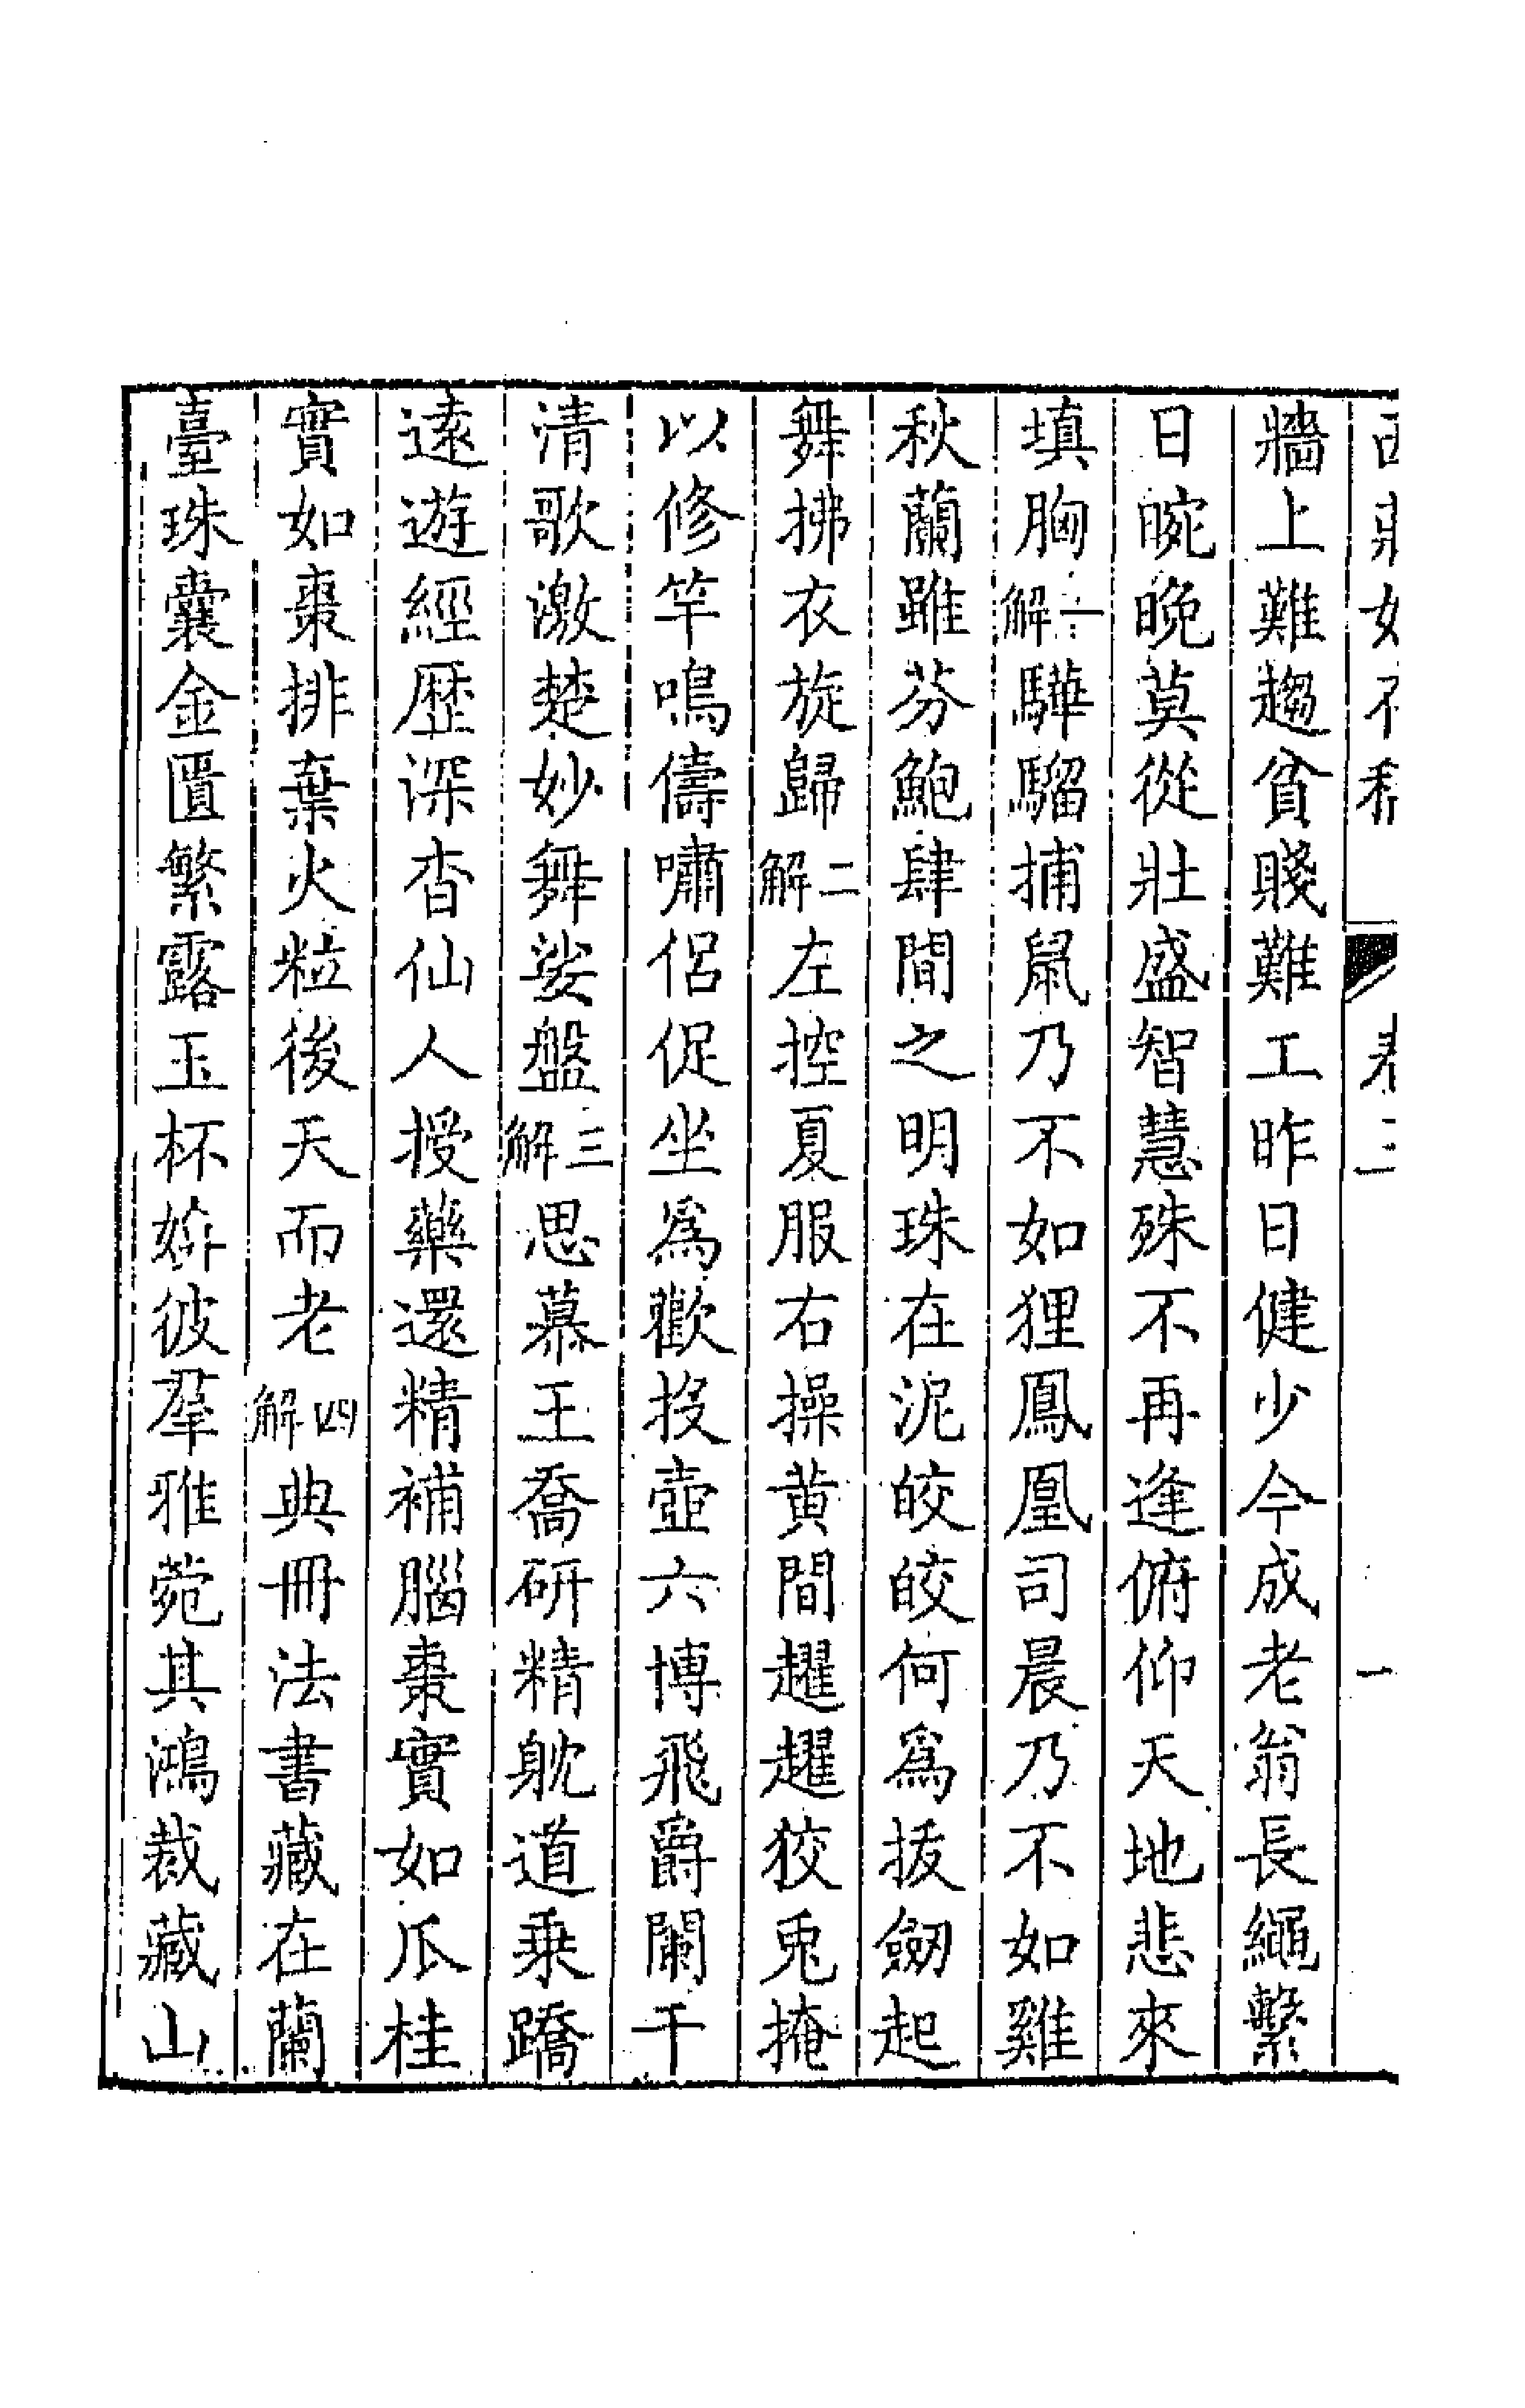 牆上難趨貧賤難工昨日健少今成老翁長繩繫
日晼晚莫從壯盛智慧殊不再逢俯仰天地悲來
填胸一解驊騮捕鼠乃不如狸鳳凰司晨乃不如雞
秋蘭雖芬鮑肆間之明珠在泥皎皎何為拔劔起
舞拂衣旋歸二解左控夏服右操黄間趯趯狡兎掩
以修竿鳴儔嘯侶促坐為歡投壺六博飛爵闌干
清歌激楚妙舞娑盤三解思慕王喬研精躭道乘蹻
遠遊經歴深杳仙人授藥還精補腦棗實如瓜桂
實如棗排棄火粒後天而老四解典冊法書藏在蘭
臺珠囊金匱繁露玉杯姷彼羣雅菀其鴻裁藏山